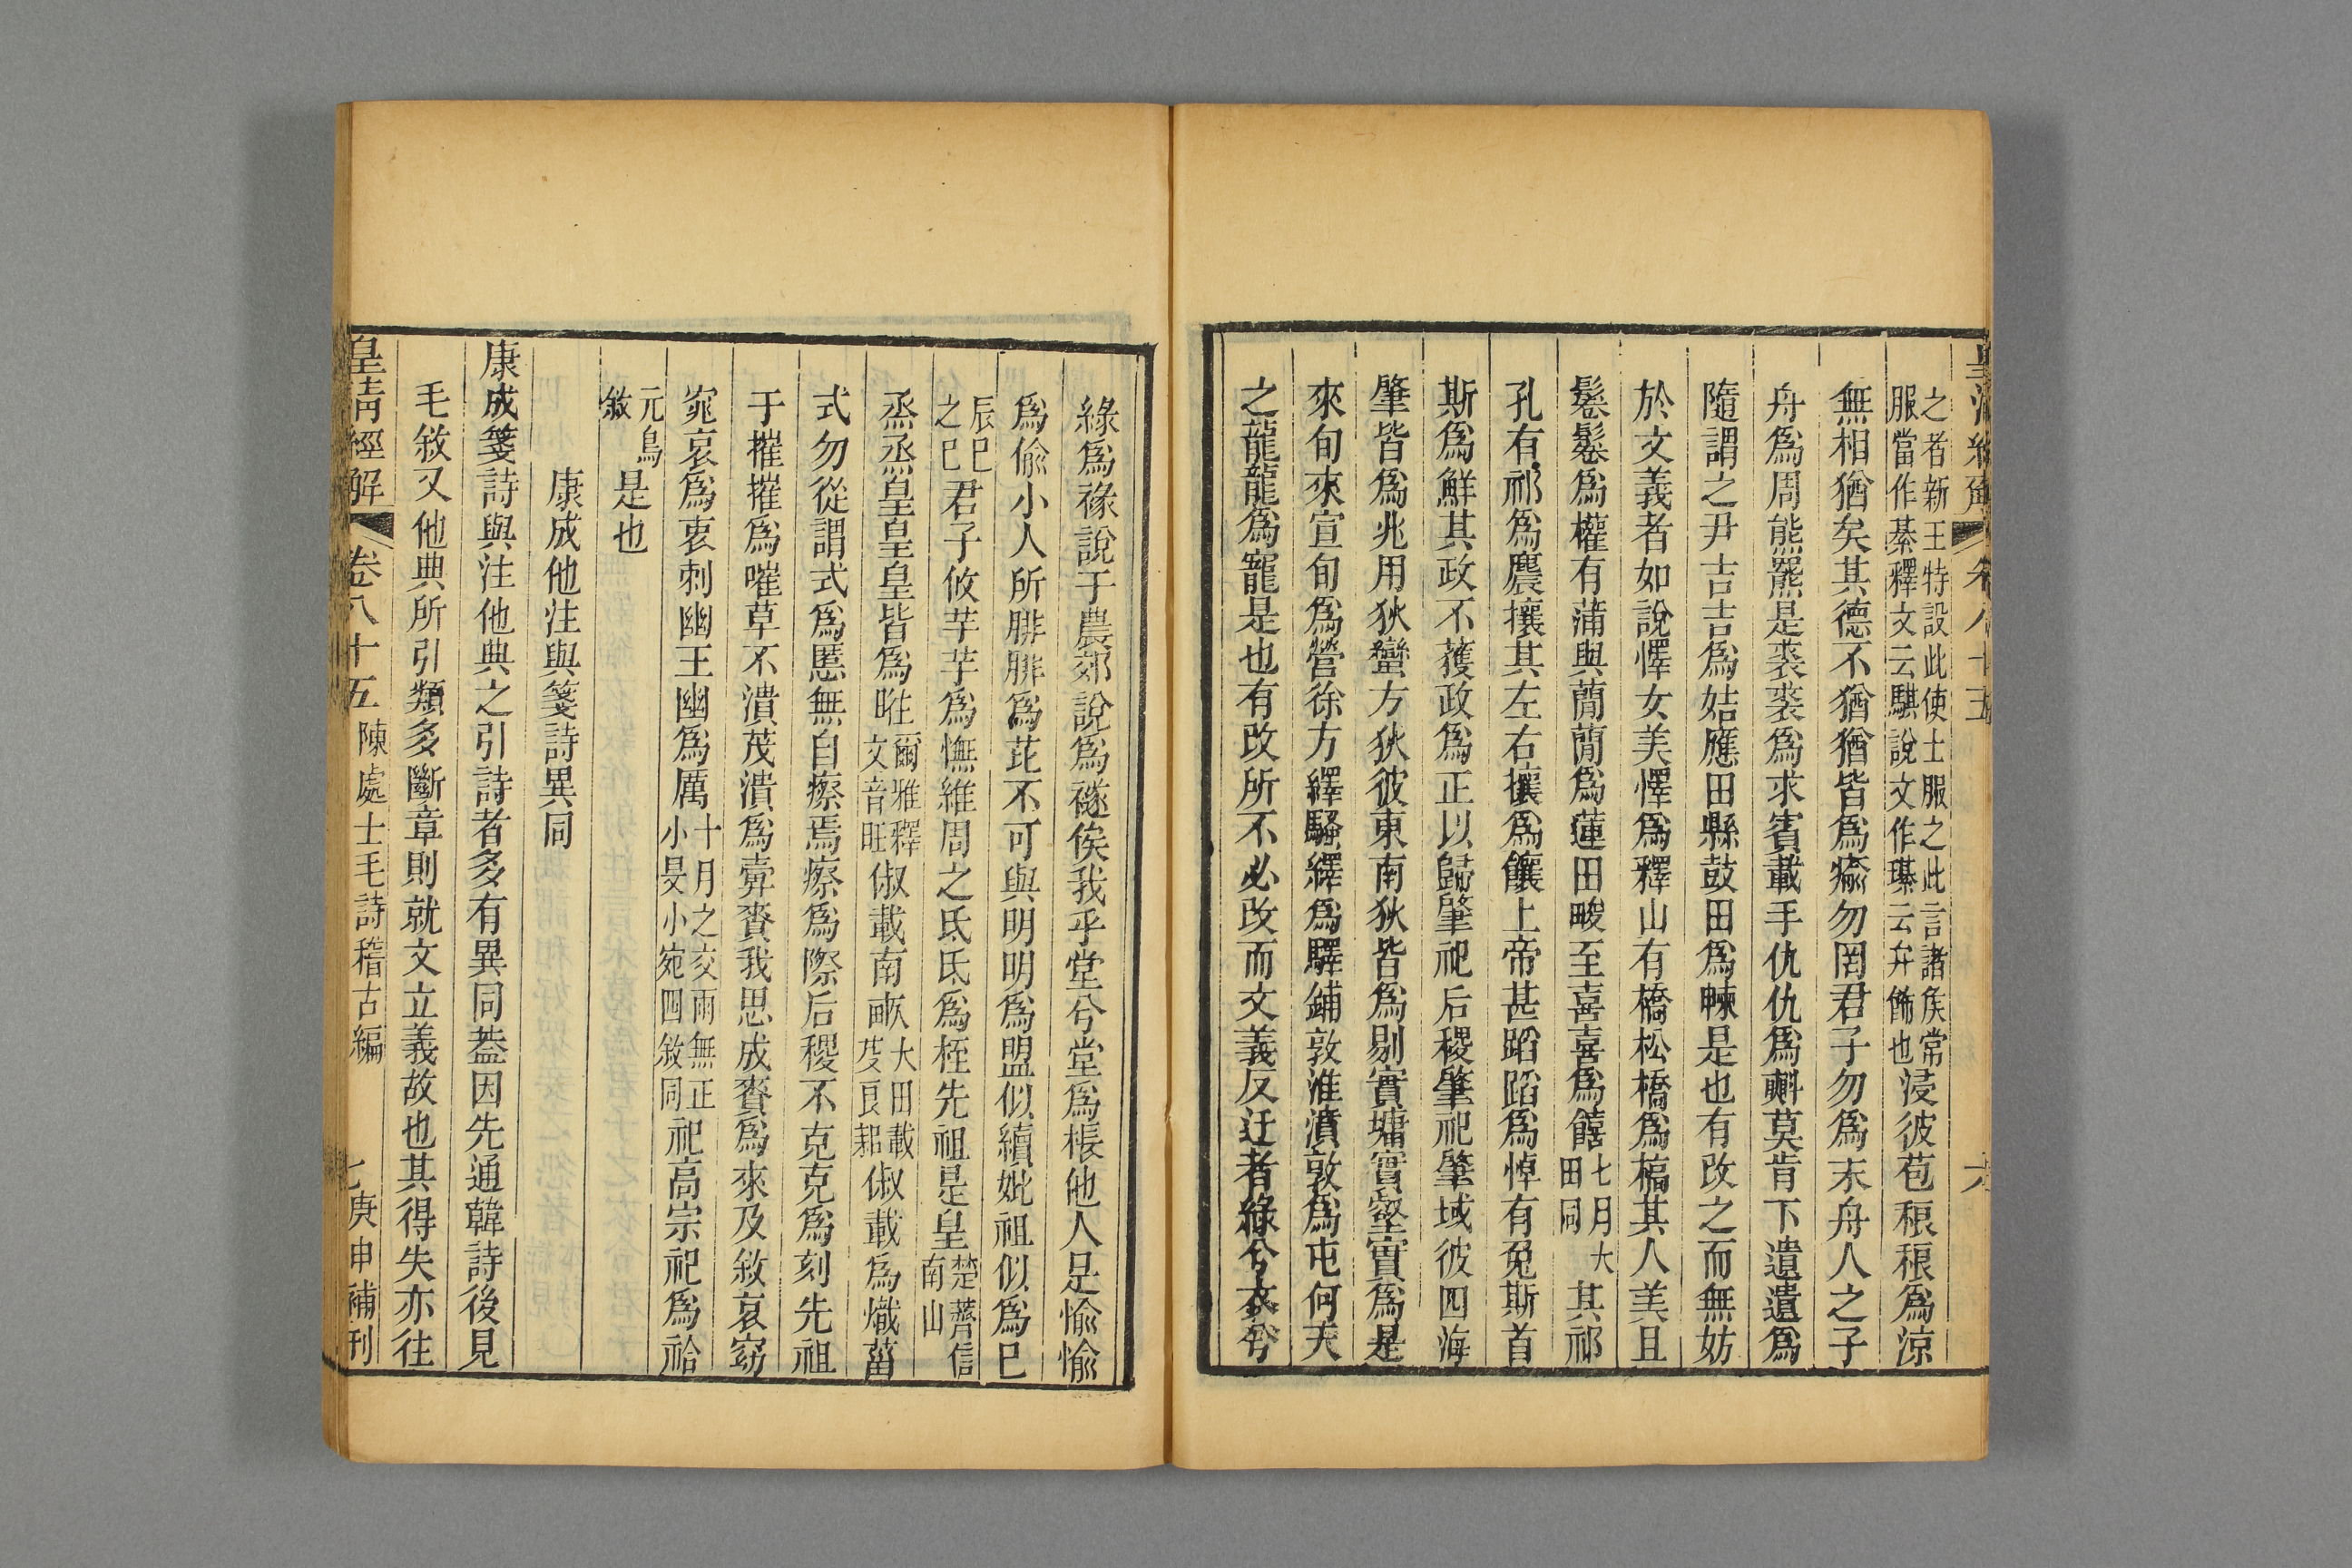 之者新王特設此使士服之此言諸侯常
服當作綦釋文云騏說文作璂云弁飾也浸彼苞稂稂爲涼
無相猶矣其德不猶猶皆爲瘉勿罔君子勿爲末舟人之子
舟爲周熊羆是裘裘爲求賓載手仇仇爲㪺莫肯下遺遺爲
隨謂之尹吉吉爲姞應田縣鼓田爲朄是也有改之而無妨
於文義者如說懌女美懌爲釋山有橋松橋爲槁其人美且
鬈鬈爲權有蒲與蕳蕳爲蓮田畯至喜喜爲饎七月大
田同其祁
孔有祁爲麎攘其左右攘爲饟上帝甚蹈蹈爲悼有兔斯首
斯爲鮮其政不獲政爲正以歸肇祀后稷肇祀肇域彼四海
肇皆爲兆用狄蠻方狄彼東南狄皆爲剔實墉實壑實爲是
來旬來宣旬爲營徐方繹騷繹爲驛鋪敦淮濆敦爲屯何天
之龍龍爲寵是也有改所不必改而文義反迂者綠兮衣兮
綠爲褖說于農郊說爲襚俟我乎堂兮堂爲棖他人是愉愉
爲偷小人所腓腓爲芘不可與明明爲盟似續妣祖似爲巳
辰巳
之巳君子攸芋芋爲憮維周之氐氐爲桎先祖是皇楚薺信
南山
烝烝皇皇皇皆爲暀爾雅釋
文音旺俶載南畝大田載
芟良耜俶載爲熾菑
式勿從謂式爲慝無自瘵焉瘵爲際后稷不克克爲刻先祖
于摧摧爲嗺草不潰茂潰爲彚賚我思成賚爲來及敘哀窈
窕哀爲衷刺幽王幽爲厲十月之交雨無正
小旻小宛四敘同祀高宗祀爲祫
元鳥
敘是也
康成他注與箋詩異同
康成箋詩與注他典之引詩者多有異同葢因先通韓詩後見
毛敘又他典所引類多斷章則就文立義故也其得失亦往
皇清經解 卷八十五 陳處士毛詩稽古編 七 庚申補刊